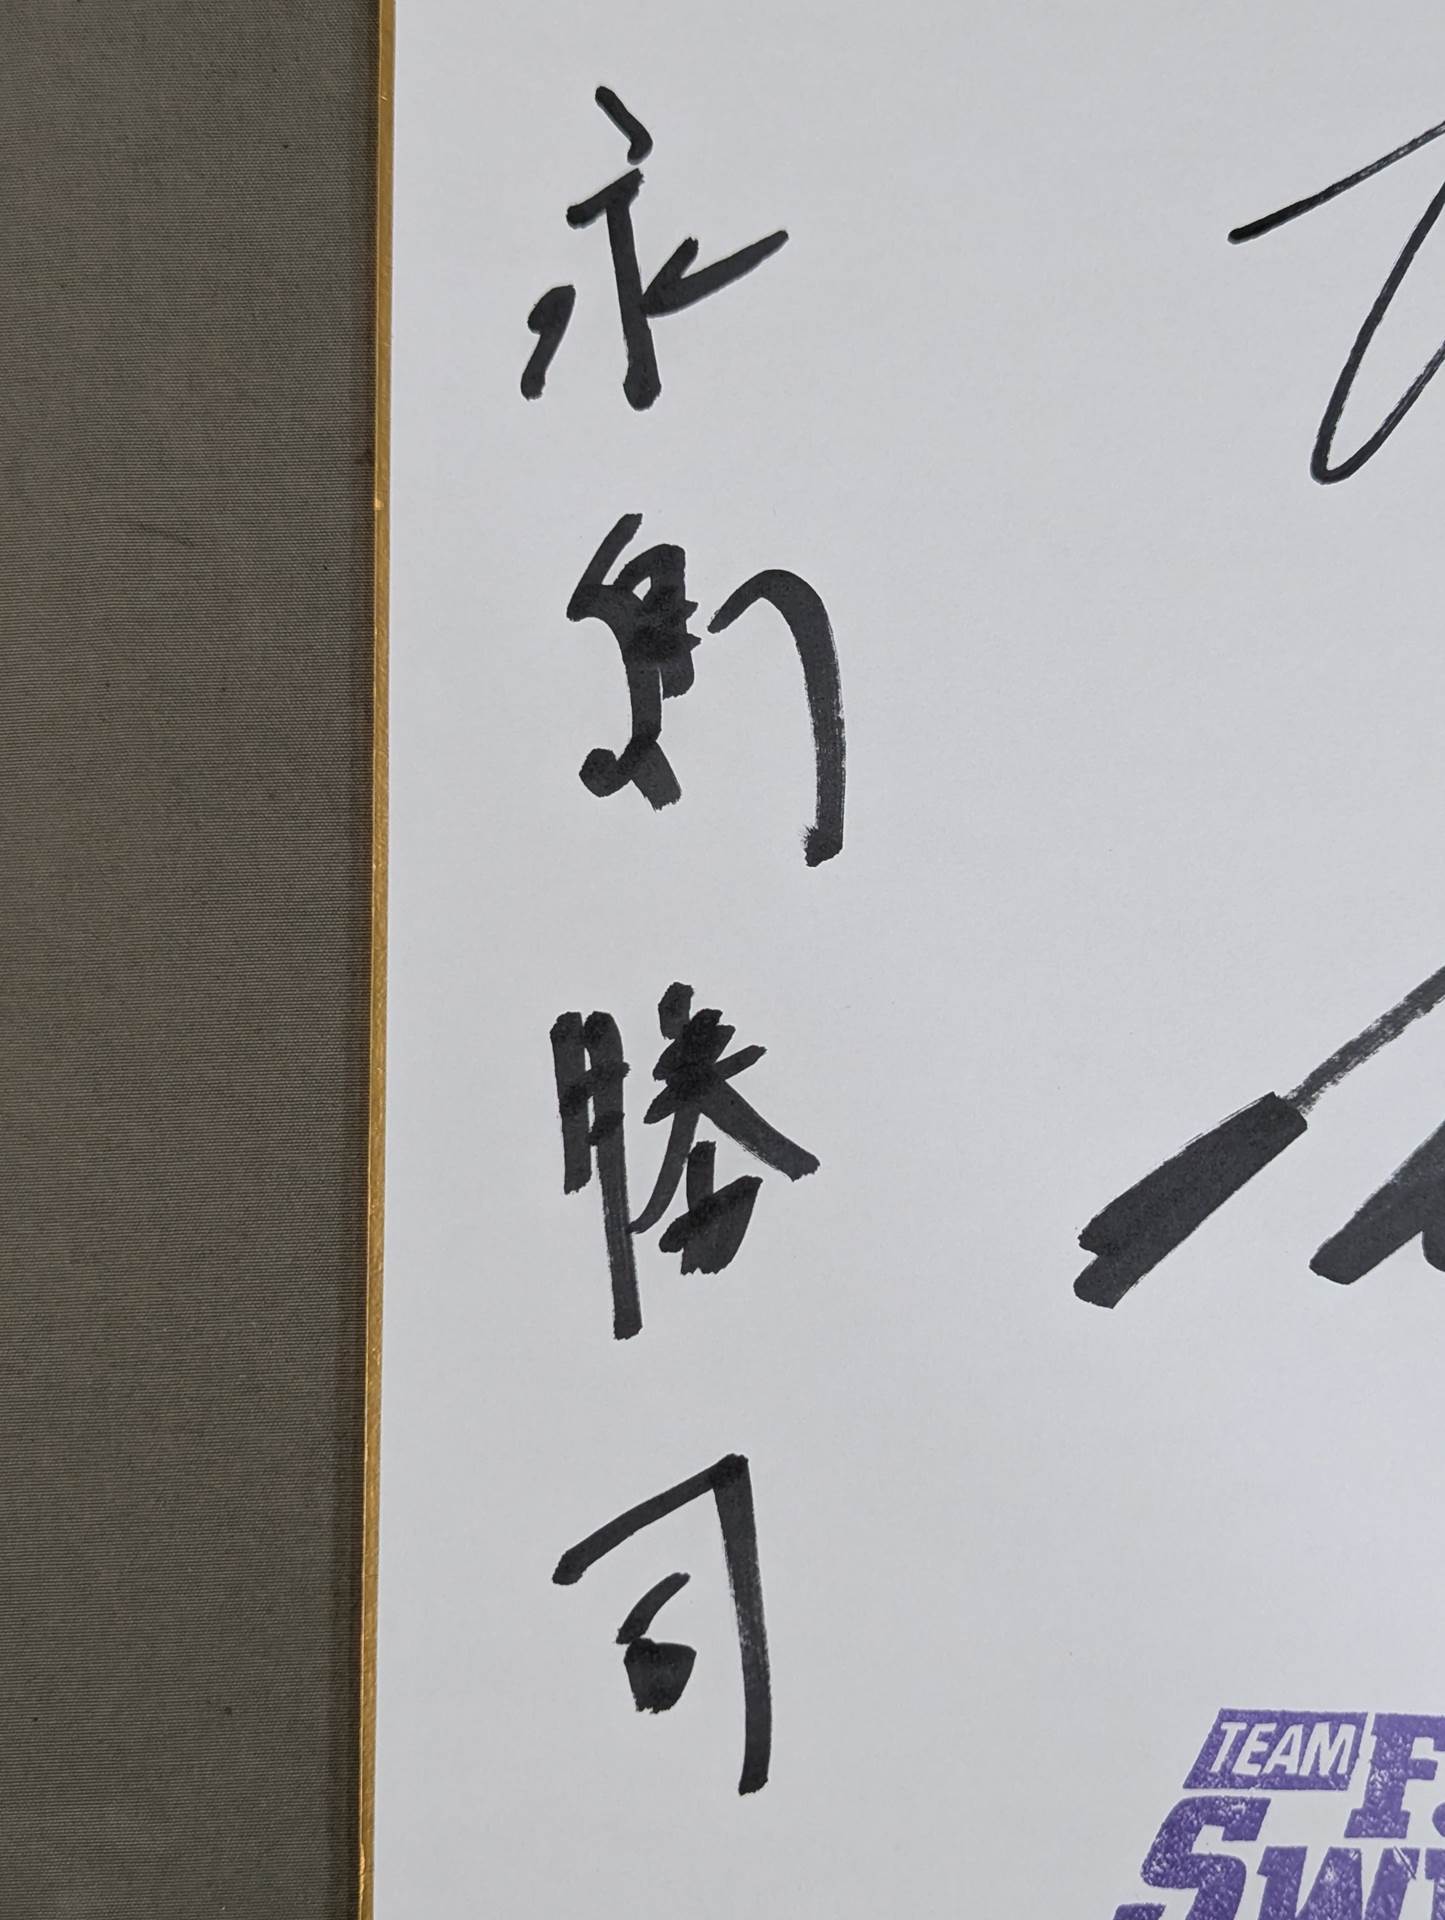 永島勝司
TEAM F
SWI